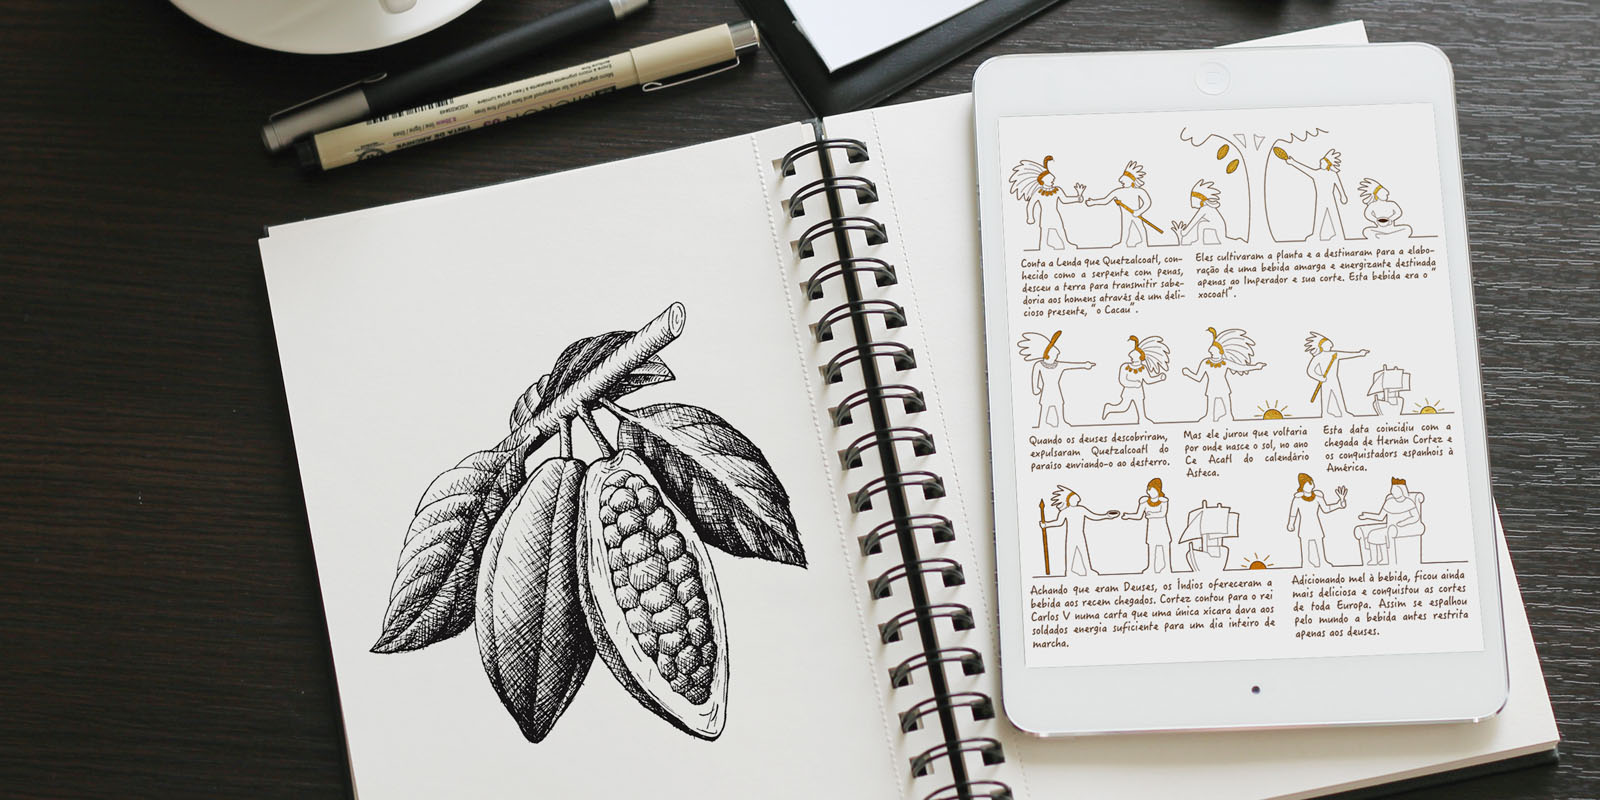 Conta a Lenda que Quetzalcoatl, con-
hecido como a serpente com penas,
desceu a terra para transmitir sabe-
doria aos homens através de um deli-
cioso presente, "o Cacau".
Eles cultivaram a planta e a destinaram para a elabo-
ração de uma bebida amarga e energizante destinada
apenas ao Imperador e sua corte. Esta bebida era o "
xocoatl".
Quando os deuses descobriram,
expulsaram Quetzalcoatl do
paraiso enviando-o ao desterro.
Mas ele jurou que voltaria
por onde nasce o sol, no ano
Ce Acatl do calendário
Asteca.
Esta data coincidiu com a
chegada de Hernán Cortez e
os conquistadors espanhois à
América.
Achando que eram Deuses, os Índios ofereceram a
bebida aos recem chegados. Cortez contou para o rei
Carlos V numa carta que uma única xicara dava aos
soldados energia suficiente para um dia inteiro de
marcha.
Adicionando mel à bebida, ficou ainda
mais deliciosa e conquistou as cortes
de toda Europa. Assim se espalhou
pelo mundo a bebida antes restrita
apenas aos deuses.